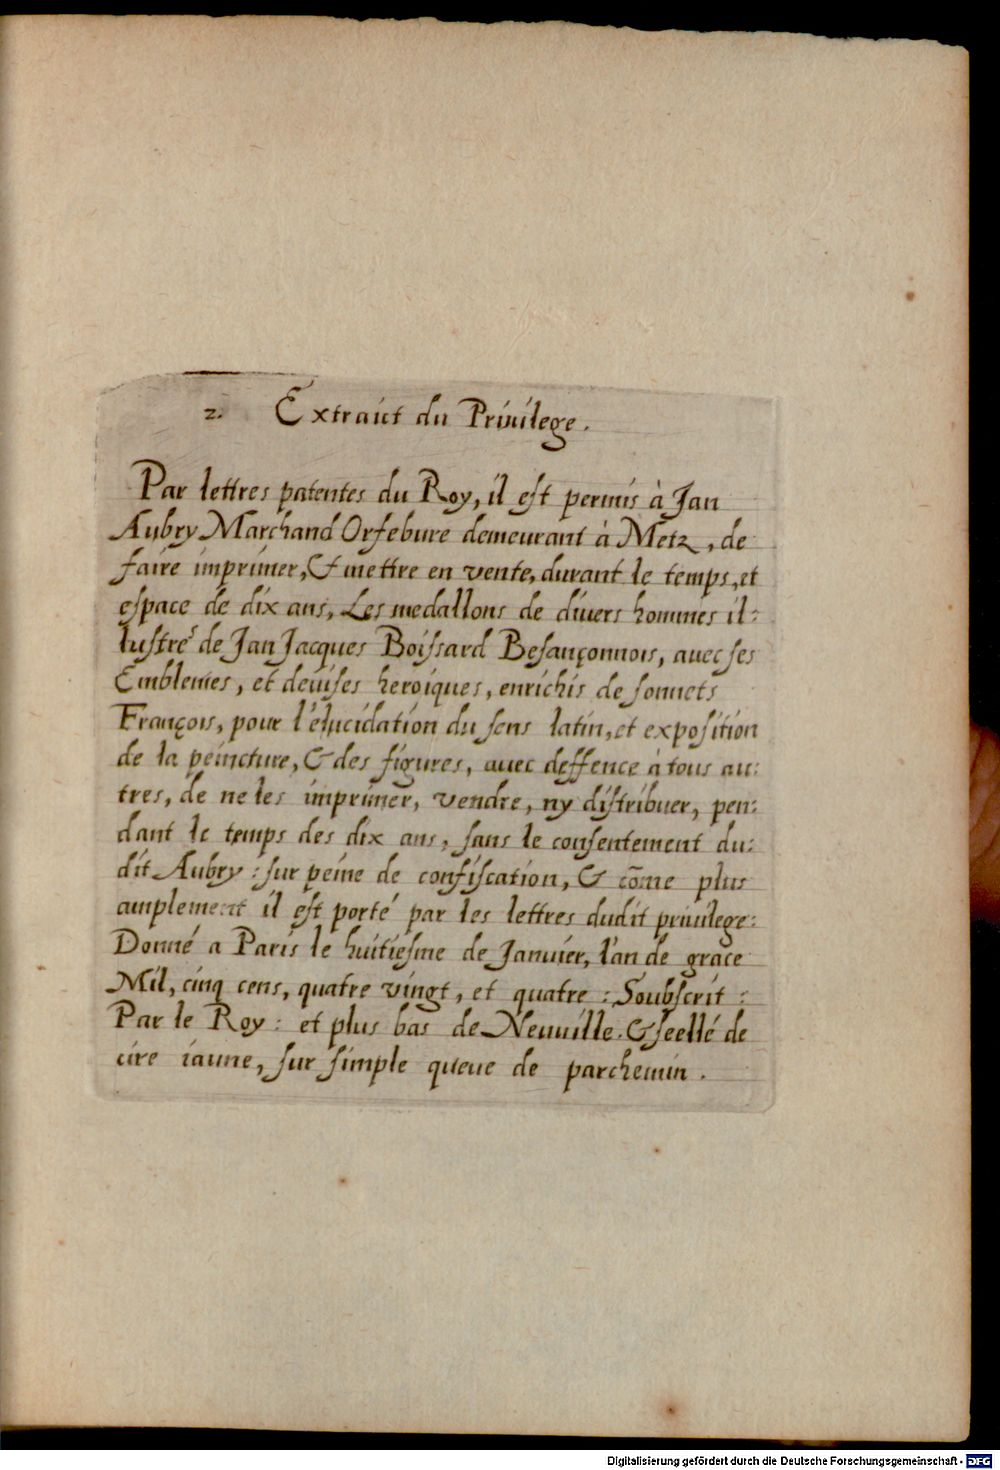 2. Extraict du Priuilege.
Par lettres patentes du Roy, il est permis à Jan
Aubry Marchand Orfebure demeurant à Metz, de
faire imprimer, & mettre en vente, durant le temps, et
espace de dix ans, Les medallons de divers hommes il:
lustres de Jan Jacques Boissard Besançonnois, avec ses
Emblemes, et deuises heroiques, enrichis de sonnets
François, pour l'élucidation du sens latin, et exposition
de la peincture, & des figures, auec deffence à tous au:
tres, de ne les imprimer, vendre, ny distribuer, pen:
dant le temps des dix ans, sans le consentement du:
dit Aubry: sur peine de confiscation, & cõme plus
amplement il est porté par les lettres dudit priuilege:
Donné a Paris le huitiesme de Januier, l'an de grace
Mil, cinq cens, quatre vingt, et quatre: Soubscrit:
Par le Roy: et plus bas de Neuuille. & seellé de
cire iaune, sur simple queue de parchemin.
Digitalisierung gefördert durch die Deutsche Forschungsgemeinschaft - DFG